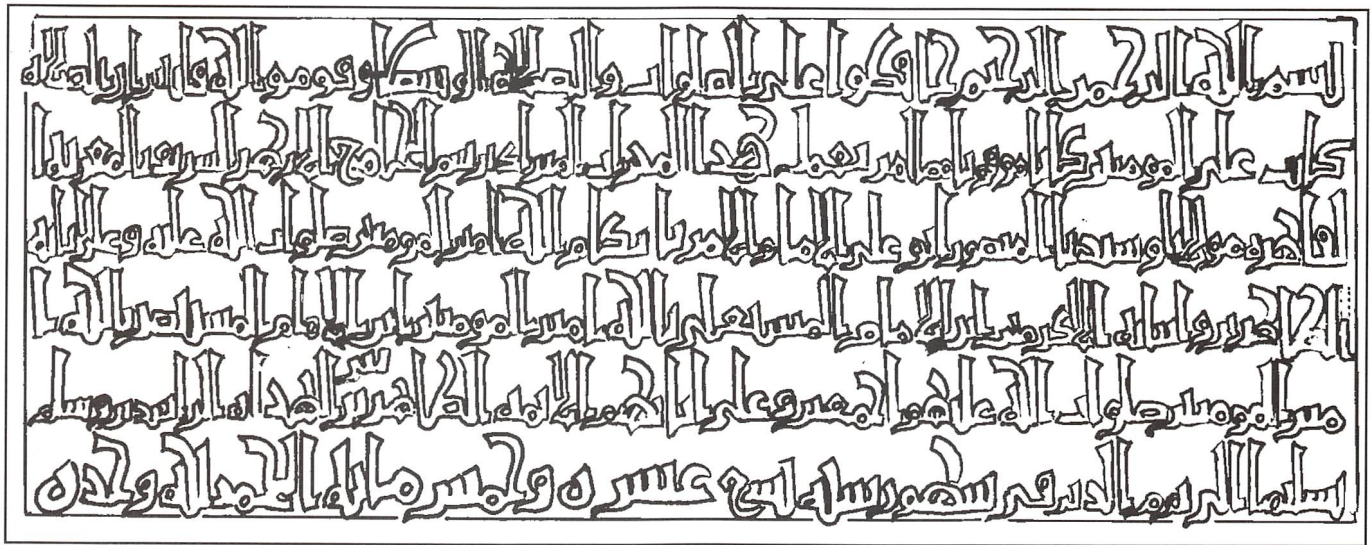 بسم الله الرحمن الرحيم حافظوا على الصلوات والصلاة الوسطى وقوموا لله قانتين ان الصلاة
كانت على المومنين كتابا موقوتا مما امر بعمل هذا المحراب المبارك برسم الجامع الازهر الشريف بالمعزية ا
لقاهرة مولانا وسيدنا المنصور ابو على الامام الامر باحكام الله امير المومنين صلوات الله عليه وعلى ابائه
الطاهرين وابنائه الاكرمين ابن الامام المستعلى بالله امير المومنين ابن الامام المستنصر بالله ا
مير المومنين صلوات الله عليهم اجمعين وعلى ابائهم الائمة الطاهرين بنى الهداة الراشدين وسلم
تسليما الى يوم الدين فى شهور سنة تسع عشرة وخمس مائة الحمد لله وحده